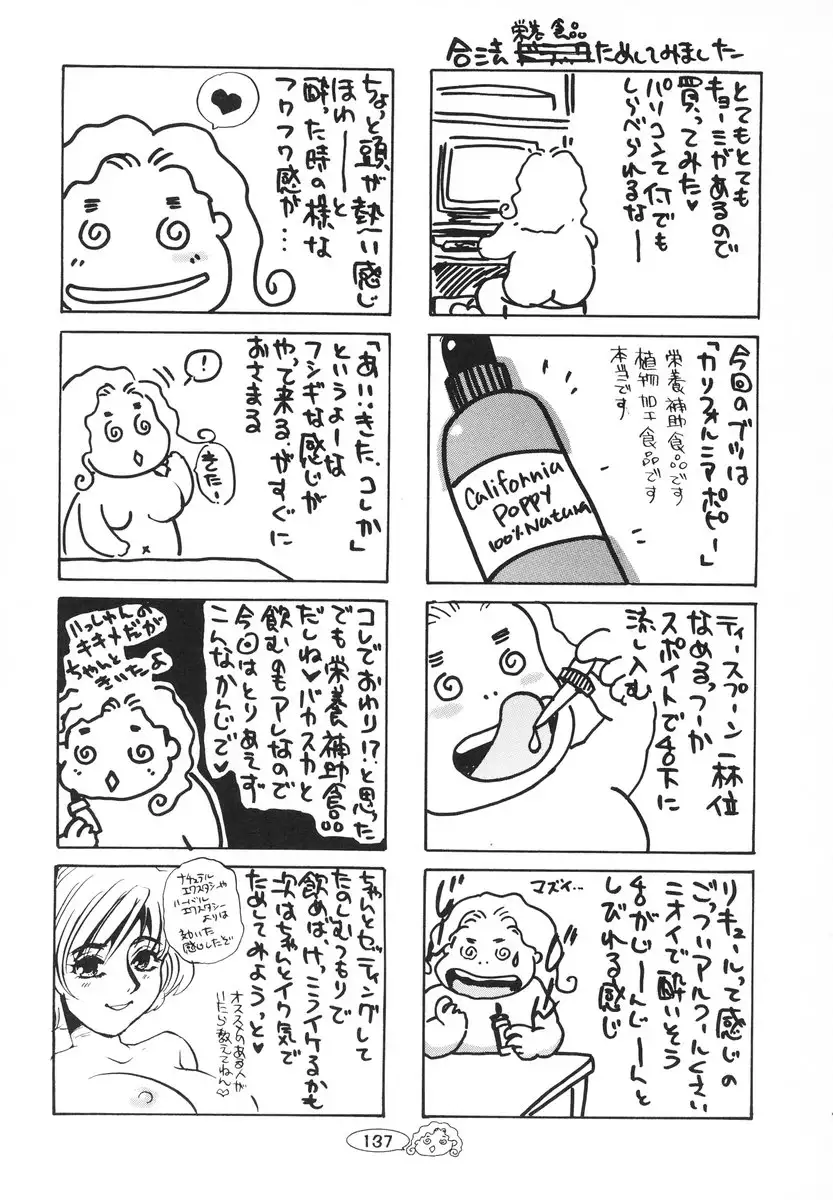 合法
栄養食品
ためしてみました
とてもとても
キョーミがあるので
買ってみた♥
パソコンて何でも
しらべられるなー
今回のブツは
「カリフォルニアポピー」
栄養補助食品です
植物加工食品です
本当です
California
POPPY
100% Natural
ティースプーン一杯位
なめる。つーか
スポイトで舌下に
流し込む
リキュールって感じの
ごっついアルコールくさい
ニオイで酔いそう
舌がじーんじーんと
しびれる感じ
マズイ…
ちょっと頭が熱ーい感じ
ほわーーーと
酔った時の様な
フワフワ感が…
「あ!!きた、コレか」
というよーな
フシギな感じが
やって来る、がすぐに
おさまる
!
きたー
コレでおわり!?と思った
でも栄養補助食品
だしね♥バカスカと
飲むのもアレなので
今回はとりあえず
こんなかんじで♥
いっしゅんの
キキメだが
ちゃんと
きいたよ
ちゃんとセッティングして
たのしむつもりで
飲めば、けっこうイケるかも
次はちゃんとイク気で
ためしてみようっと♥
ナチュラル
エクスタシーや
ハーバル
エクスタシー
よりは
効いた
感じしたぞ
オススメのある人が
いたら教えてねん♡
137